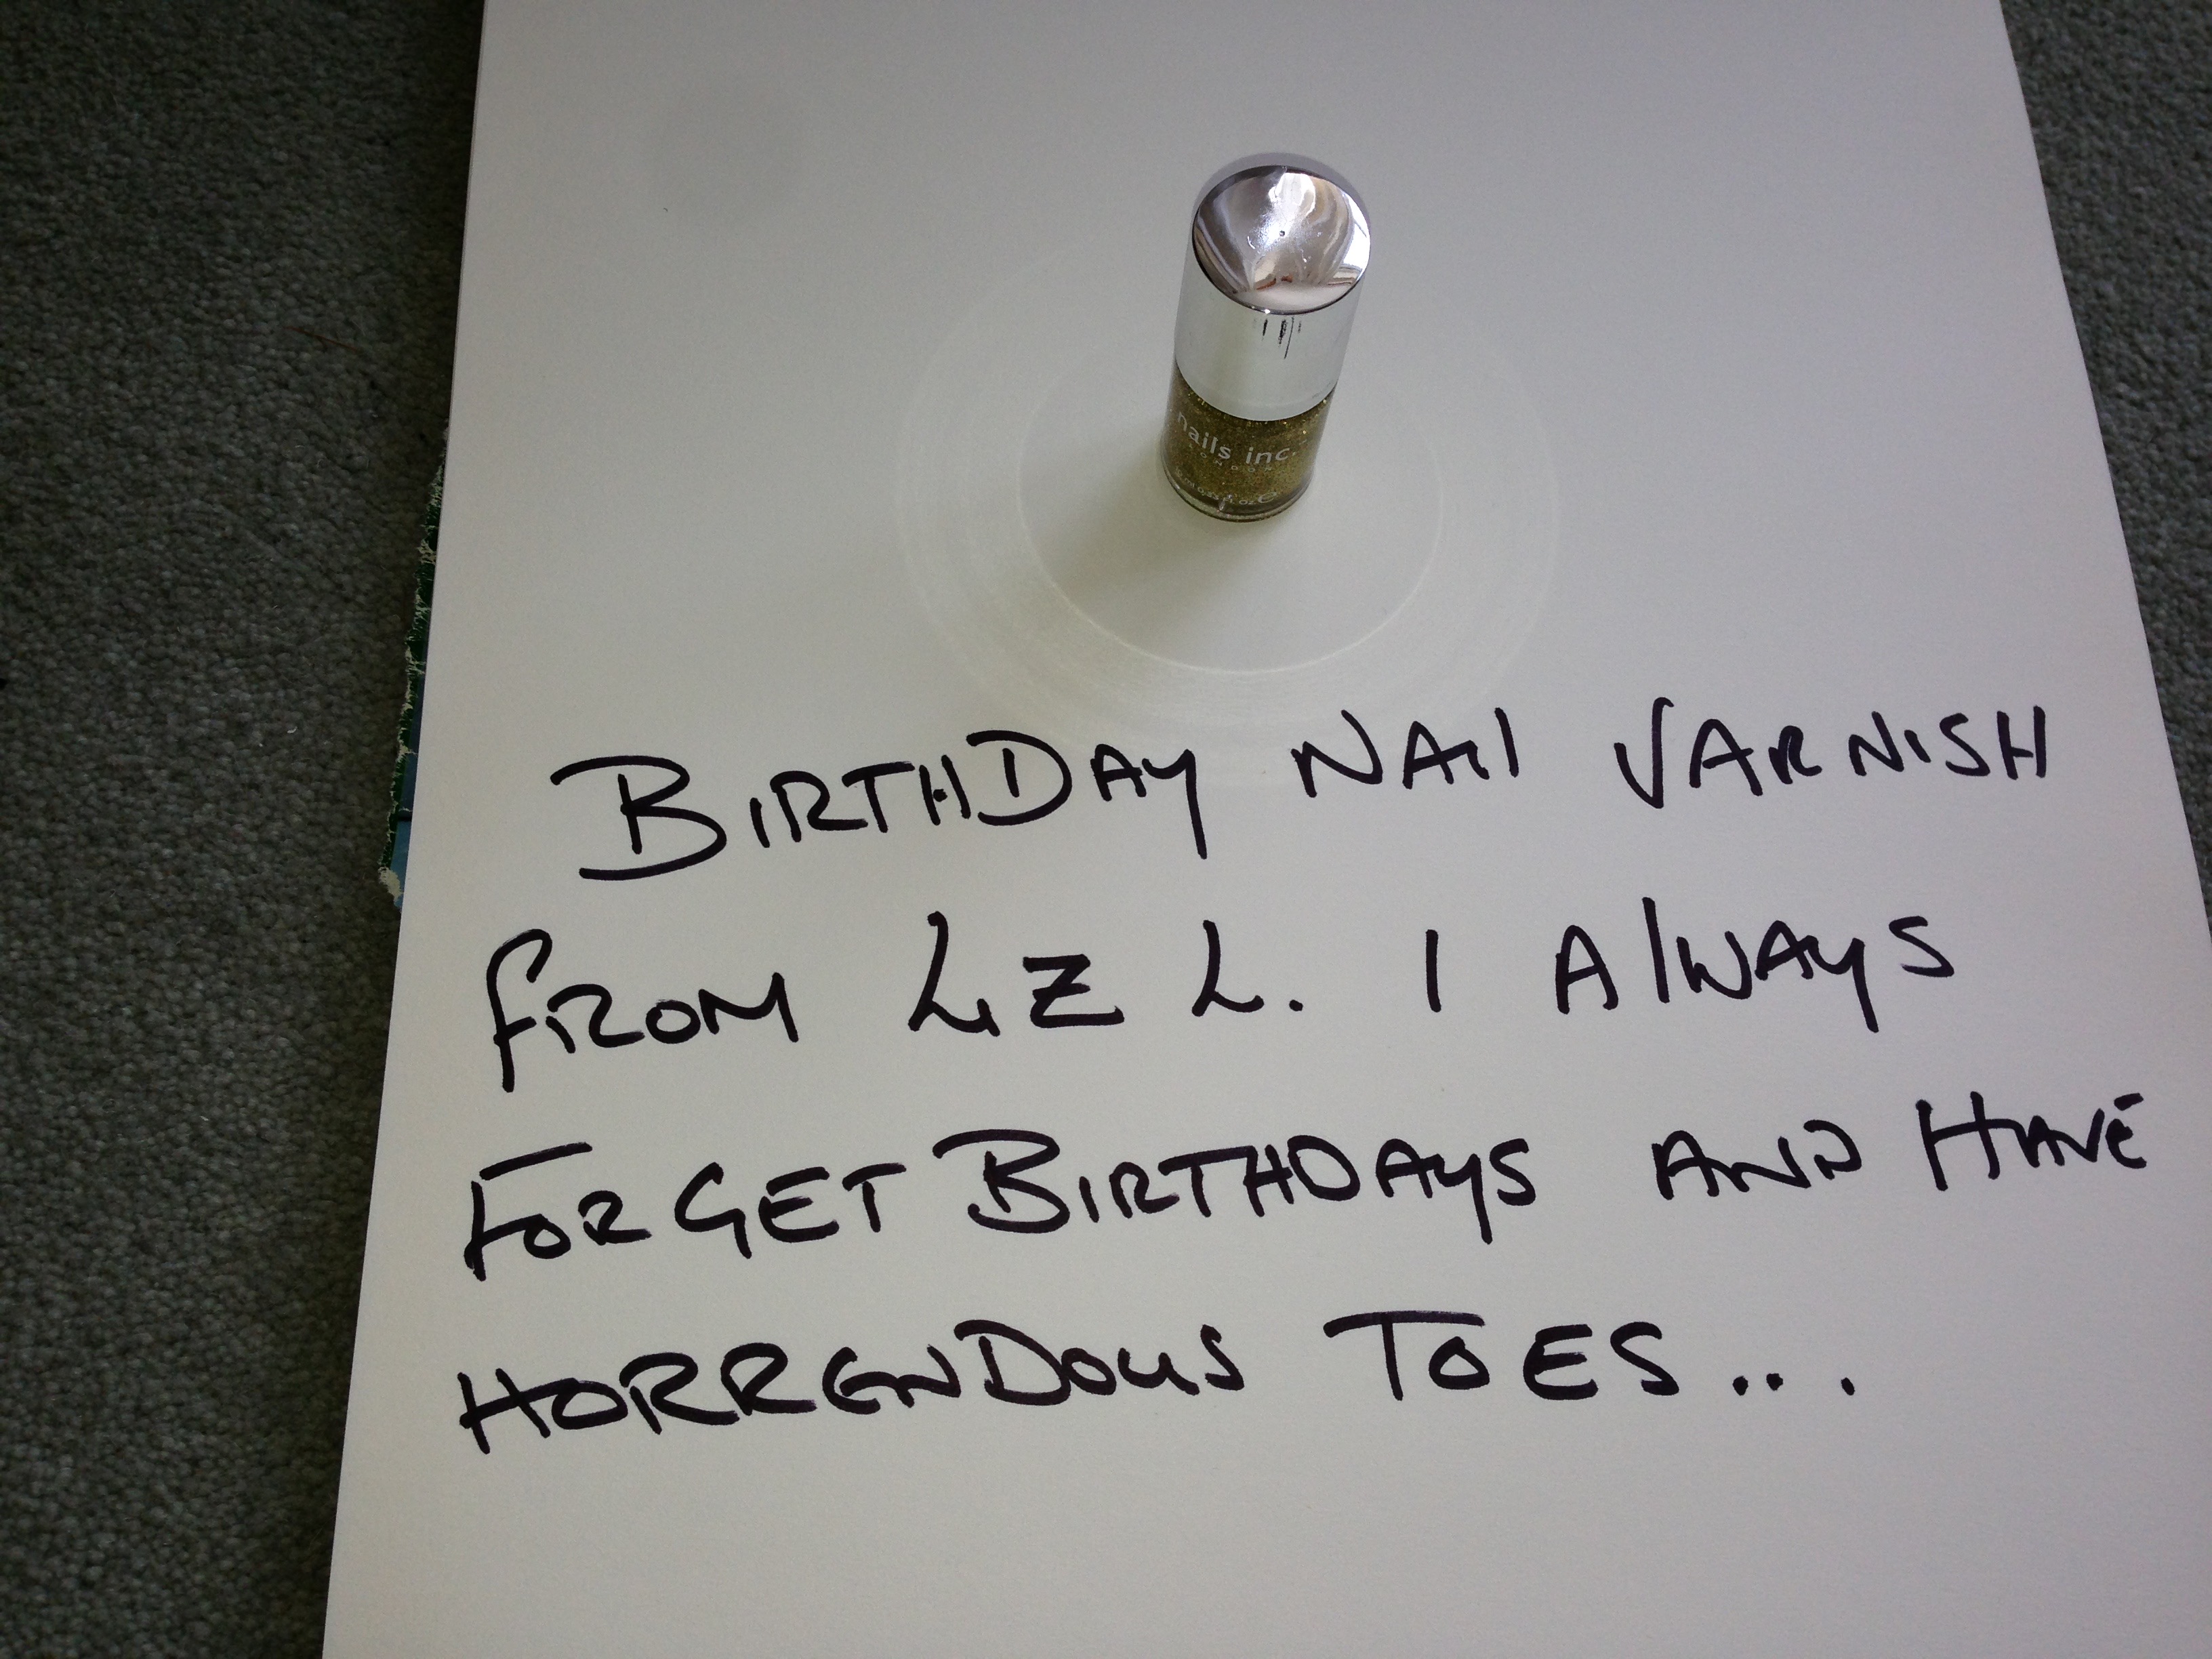 nails inc.
LONDON
BIRTHDAY NAIL VARNISH
FROM LIZ L. I ALWAYS
FORGET BIRTHDAYS AND HAVE
HORRENDOUS TOES...